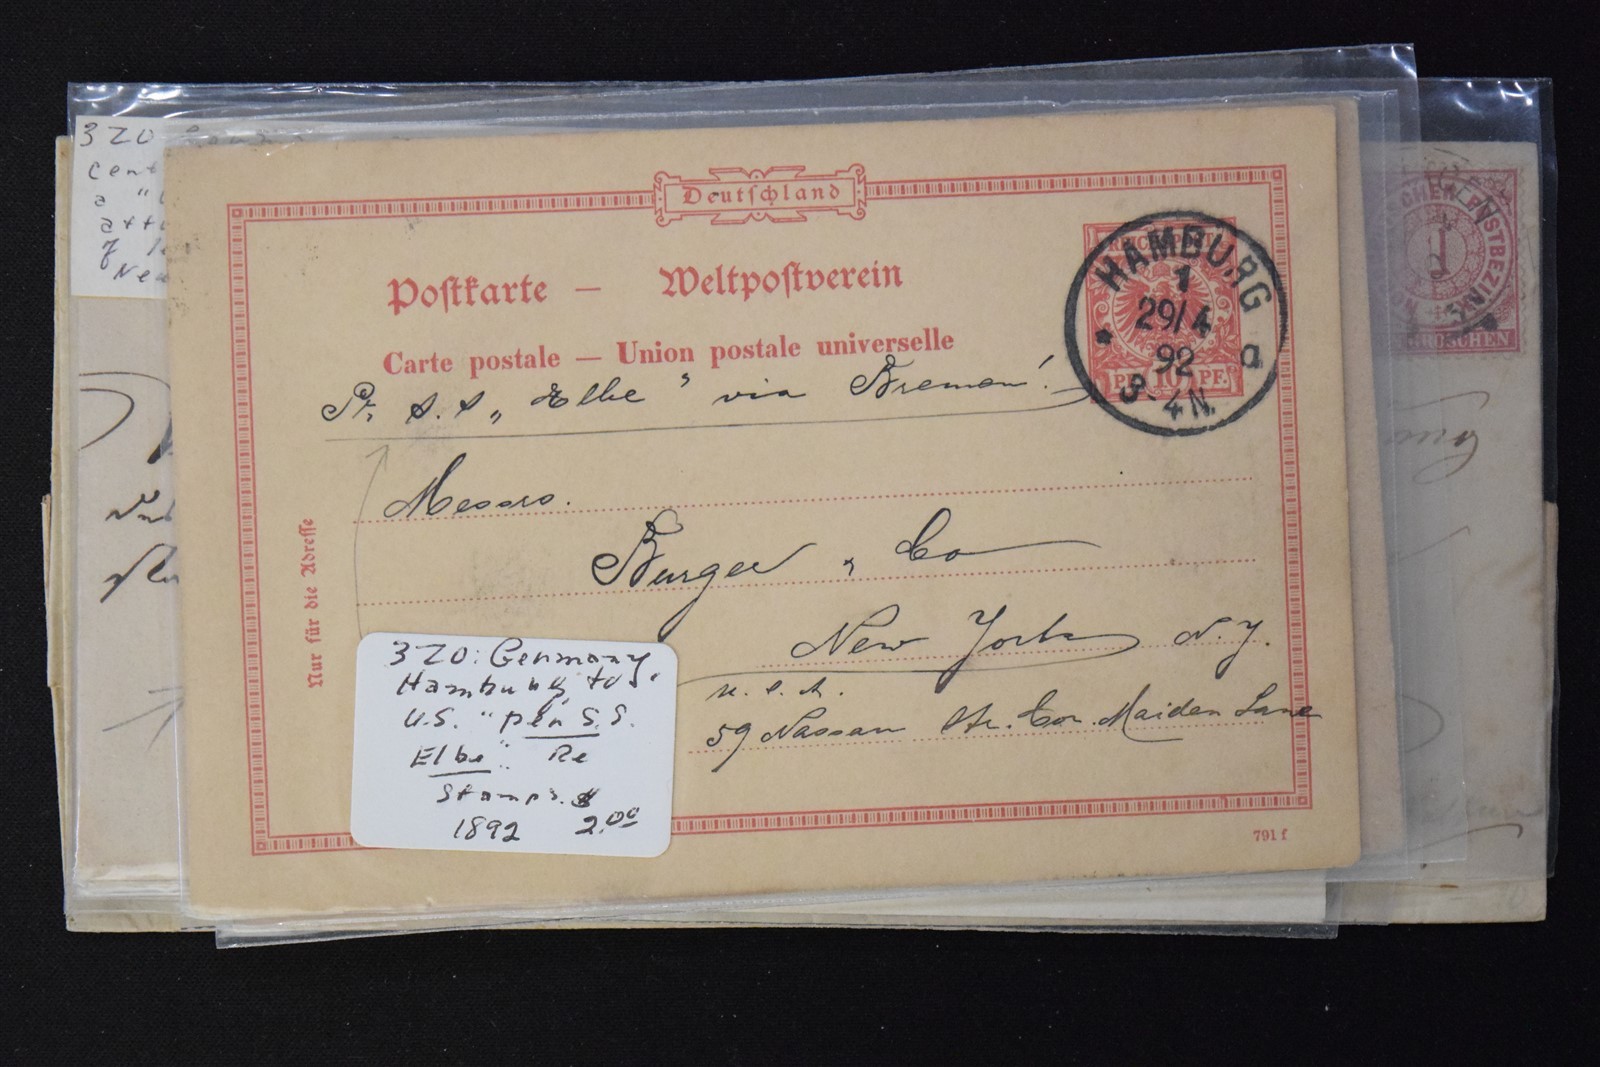 Deutschland
Postkarte — Weltpostverein
Carte postale — Union postale universelle
REICHSPOST
PF 10 PF.
HAMBURG
1
29/4
92
3-4N.
a
Pr. S.S. „Elbe" via Bremen!
Messrs.
Burger & Co
New York N.Y.
U.S.A.
59 Nassau Str. Cor. Maiden Lane
Nur für die Adresse
791 f
3 ZO: Germany.
Hamburg to
U.S. "per S.S.
Elbe". Re
Stamps. $
1892 2.00
3 ZO
Cent
a "
atta
of le
New
1